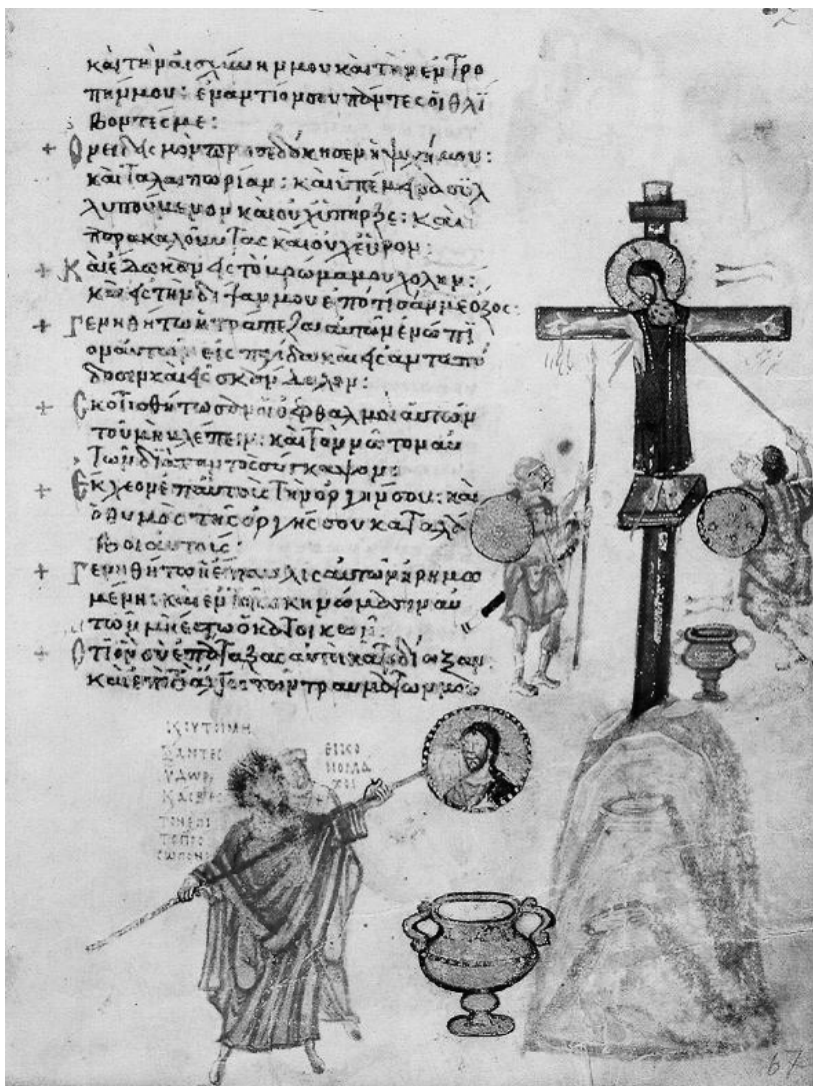 καὶ τὴν αἰσχύνην μου καὶ τὴν ἐντρο
πήν μου: ἐναντίον σου πάντες οἱ θλί
βοντές με:
+ Ὀνειδισμὸν προσεδόκησεν ἡ ψυχή μου:
καὶ ταλαιπωρίαν: καὶ ὑπέμεινα συλ
λυπούμενον καὶ οὐχ ὑπῆρξε: καὶ
παρακαλοῦντας καὶ οὐχ εὗρον:
+ Καὶ ἔδωκαν εἰς τὸ βρῶμα μου χολήν:
καὶ εἰς τὴν δίψαν μου ἐπότισάν με ὄξος:
+ Γενηθήτω ἡ τράπεζα αὐτῶν ἐνώπι
ον αὐτῶν εἰς παγίδα καὶ εἰς ἀνταπό
δοσιν καὶ εἰς σκάνδαλον:
+ Σκοτισθήτωσαν οἱ ὀφθαλμοὶ αὐτῶν
τοῦ μὴ βλέπειν: καὶ τὸν νῶτον αὐ
τῶν διὰ παντὸς σύγκαψον:
+ Ἔκχεον ἐπ αὐτοὺς τὴν ὀργήν σου: καὶ
ὁ θυμὸς τῆς ὀργῆς σου καταλά
βοι αὐτούς:
+ Γενηθήτω ἡ ἔπαυλις αὐτῶν ἠρημω
μένη: καὶ ἐν τοῖς σκηνώμασιν αὐ
τῶν μὴ ἔστω ὁ κατοικῶν:
+ Ὅτι ὃν σὺ ἐπάταξας αὐτοὶ κατεδίωξαν:
καὶ ἐπὶ τὸ ἄλγος τῶν τραυμάτων μου
ΞΑΝΤΕΣ
ΥΔΩΡ
ΤΟΝ ΕΠΙ
ΤΟ ΠΡΟ
ΣΩΠΟΝ
ΕΙΚΟ
ΝΟΜΑ
ΧΟΙ
67